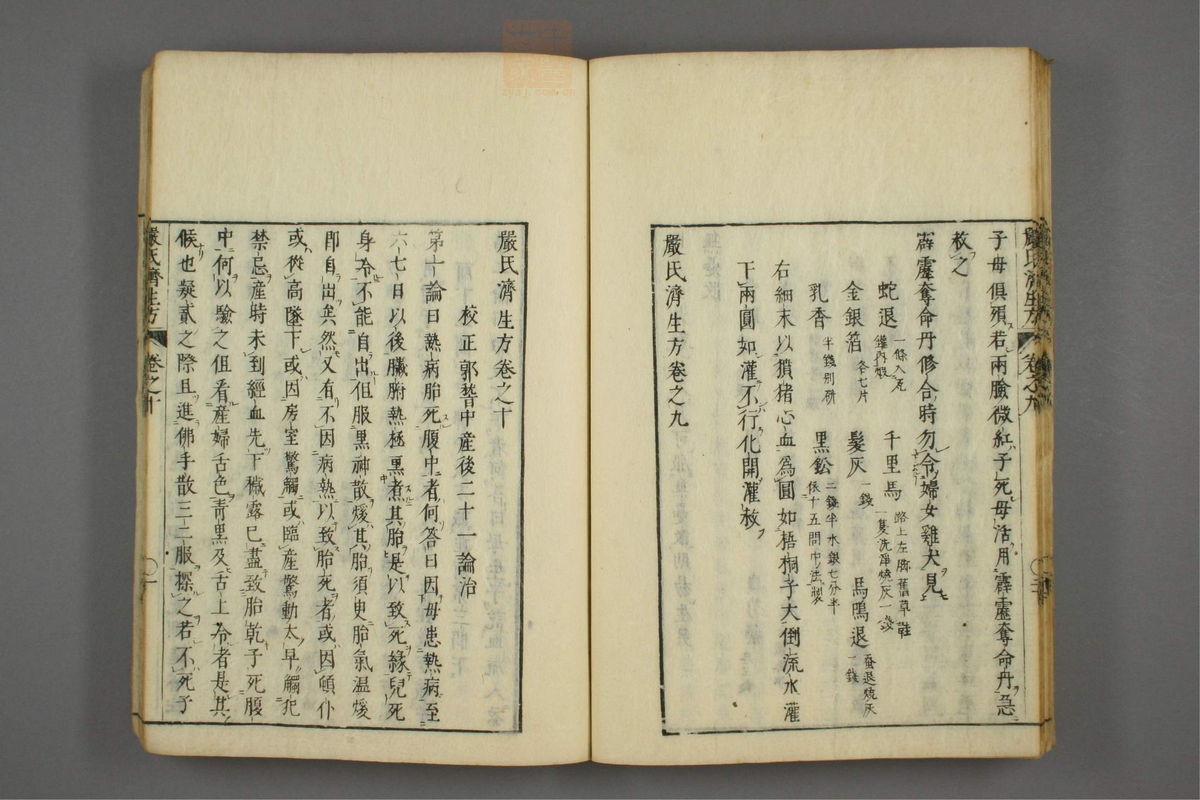 子母俱殞若兩臉微紅子死母活用霹靂奪命丹急
救之
霹靂奪命丹修合時勿令婦女雞犬見
蛇退 一條入瓦鑵內煅 千里馬 路上左脚舊草鞋一隻洗淨燒灰一錢
金銀箔 各七片 髮灰 一錢 馬鳴退 蚕退燒灰一錢
乳香 半錢別研 黑鉛 二錢半水銀七分半依十五問中法製
右細末以獖猪心血爲圓如梧桐子大倒流水灌
下兩圓如灌不行化開灌救
嚴氏濟生方卷之九
嚴氏濟生方 卷之九
嚴氏濟生方卷之十
校正郭稽中産後二十一論治
第一論曰熱病胎死腹中者何答曰因母患熱病至
六七日以後臟腑熱極熏煮其胎是以致死緣兒死
身冷不能自出但服黑神散煖其胎須臾胎氣温煖
即自出矣然又有不因病熱以致胎死者或因頓仆
或從高墜下或因房室驚觸或臨産驚動太早觸犯
禁忌産時未到經血先下穢露已盡致胎乾子死腹
中何以驗之但看産婦舌色青黑及舌上冷者是其
候也疑貳之際且進佛手散三二服探之若不死子
嚴氏濟生方 卷之十 一